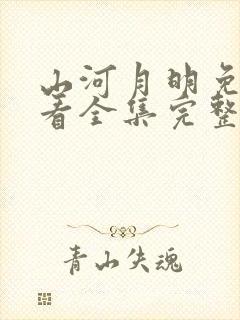 山河月明免
着全集完整
青山失魂